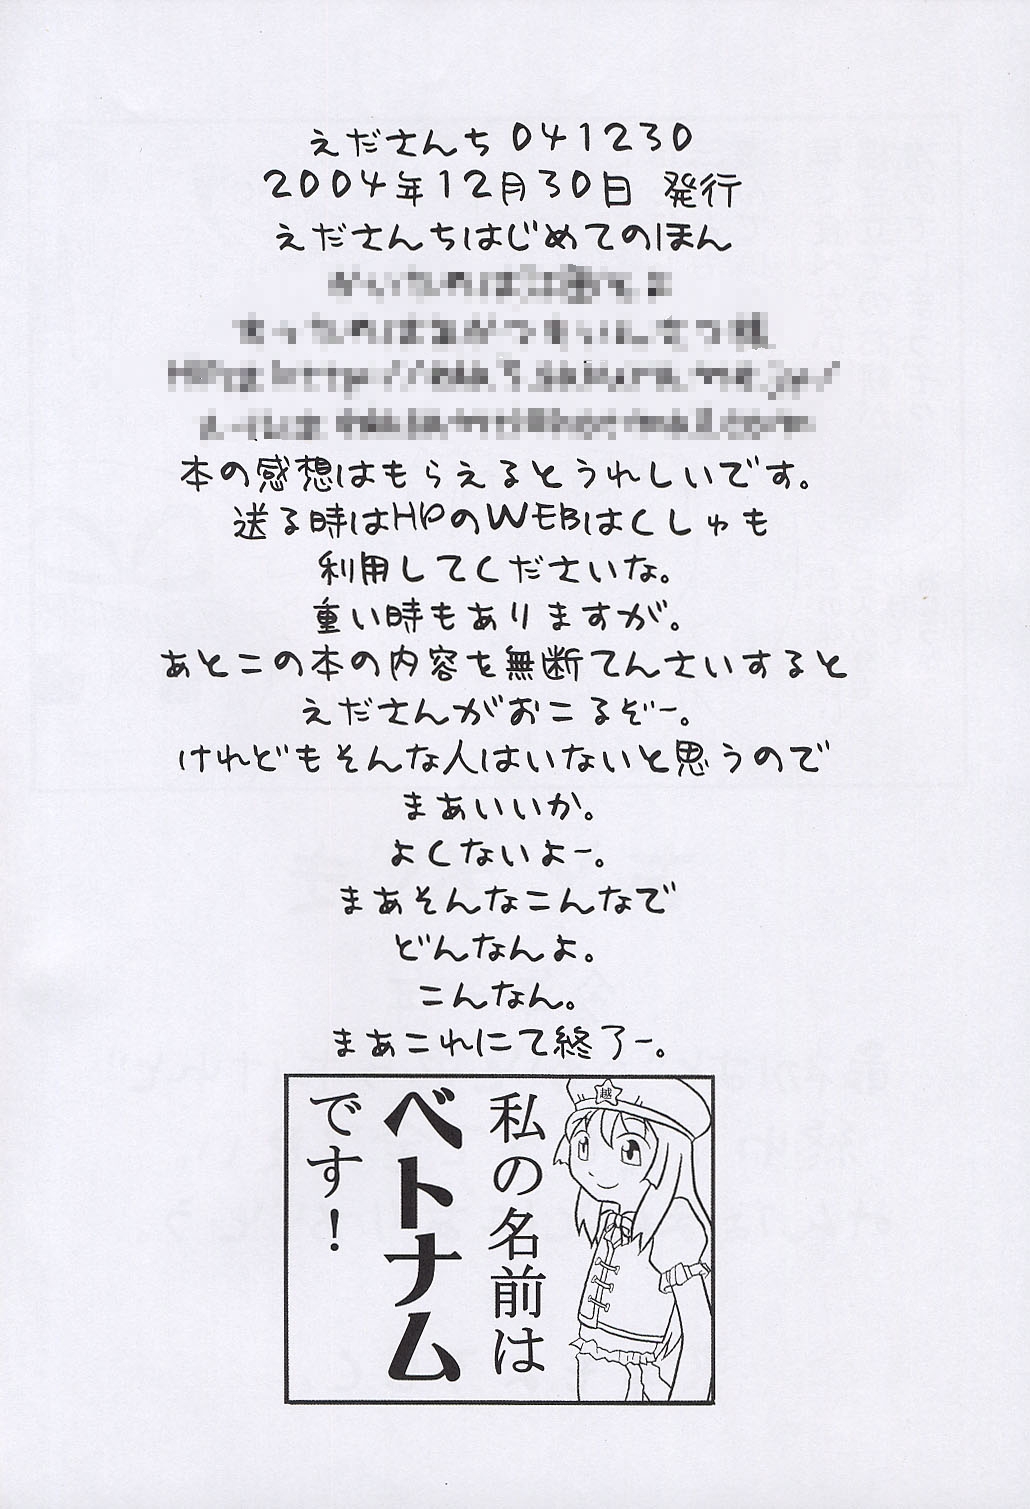 えださんち041230
2004年12月30日 発行
えださんちはじめてのほん
本の感想はもらえるとうれしいです。
送る時はHPのWEBはくしゅも
利用してくださいな。
重い時もありますが。
あとこの本の内容を無断てんさいすると
えださんがおこるぞー。
けれどもそんな人はいないと思うので
まあいいか。
よくないよー。
まあそんなこんなで
どんなんよ。
こんなん。
まあこれにて終了ー。
越
私の名前は
ベトナム
です!